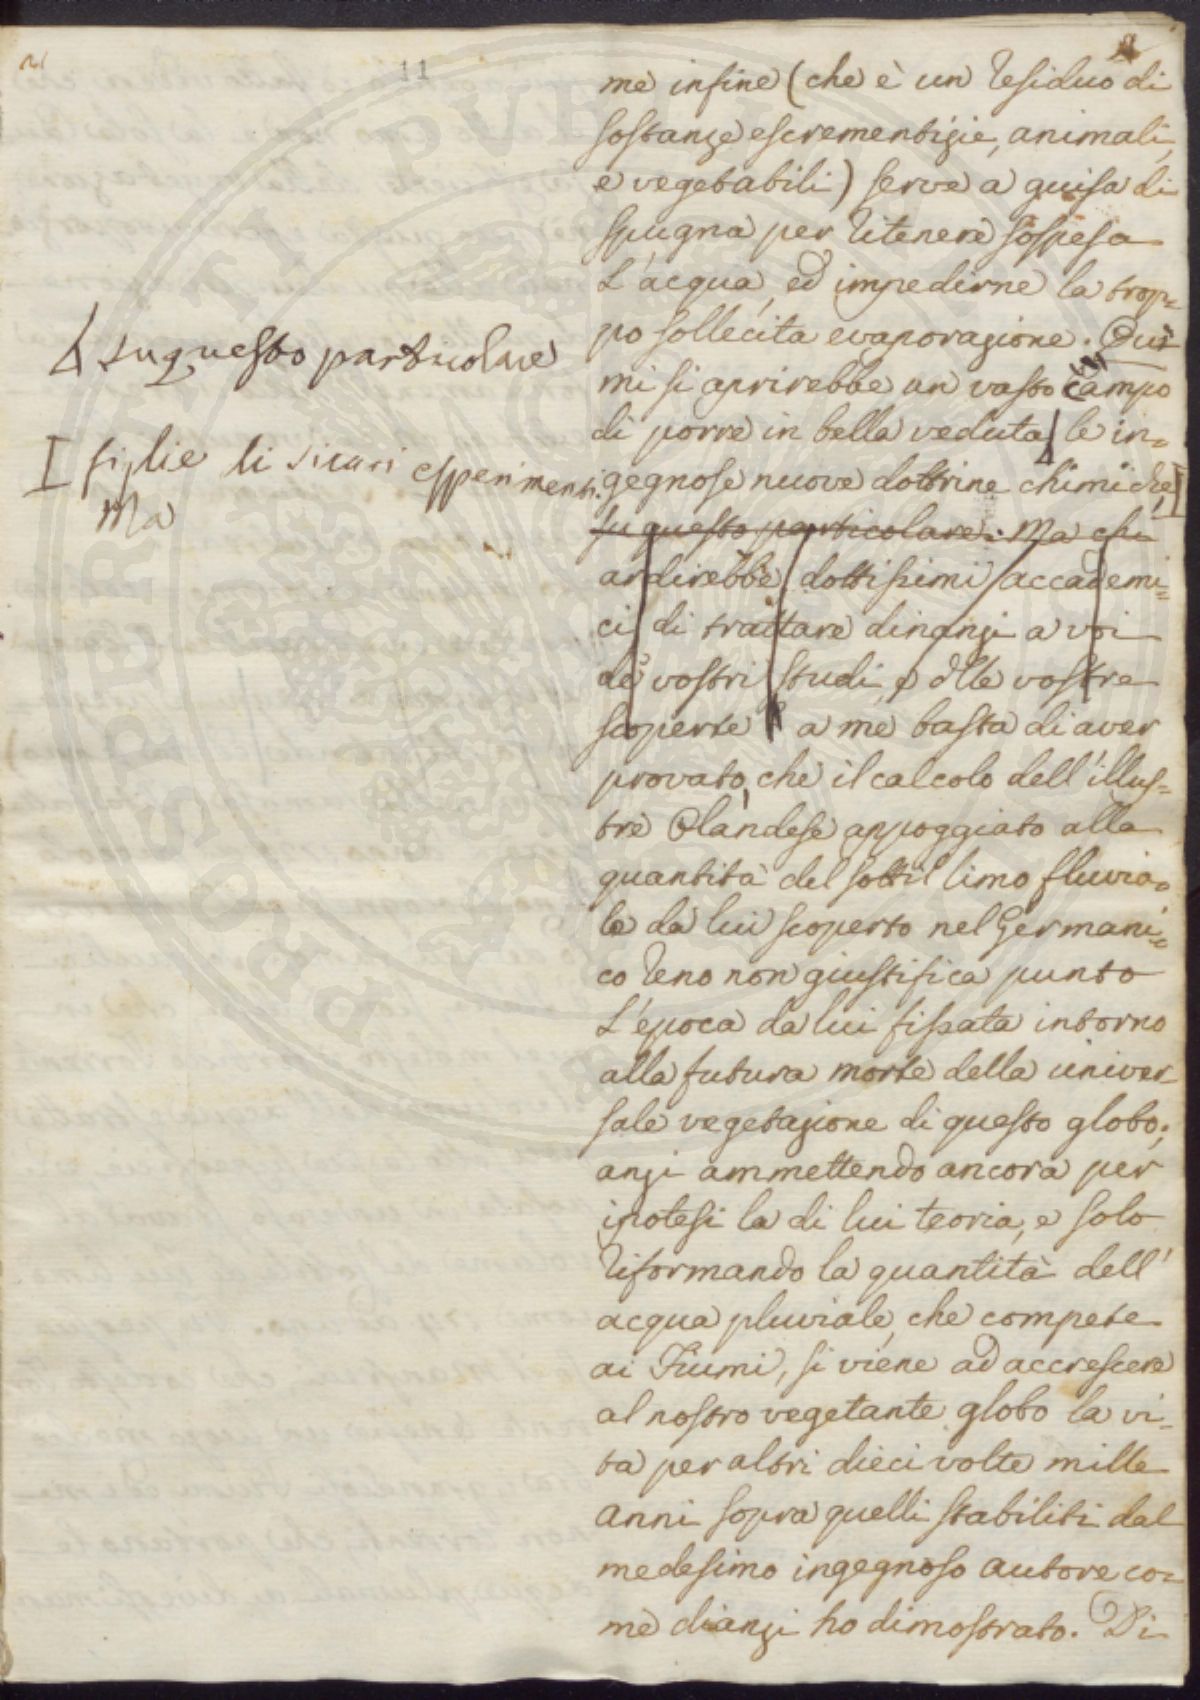 11
me infine (che è un residuo di
sostanze escrementizie, animali,
e vegetabili) serve a guisa di
spugna per ritenere sospesa
l'acqua, ed impedirne la trop=
po sollecita evaporazione. Qui
mi si aprirebbe un vasto campo
di porre in bella veduta le in=
gegnose nuove dottrine chimiche,
su questo particolare. Ma chi
ardirebbe, dottissimi accademi=
ci, di trattare dinanzi a voi
de' vostri studi, e dlle vostre
scoperte? a me basta di aver
provato, che il calcolo dell'illus=
tre Olandese appoggiato alla
quantità del sottil limo fluvia=
le da lui scoperto nel Germani=
co Reno non giustifica punto
l'epoca da lui fissata intorno
alla futura morte della univer
sale vegetazione di questo globo;
anzi ammettendo ancora per
ipotesi la di lui teoria, e solo
riformando la quantità dell'
acqua pluviale, che compete
ai Fiumi, si viene ad accrescere
al nostro vegetante globo la vi=
ta per altri dieci volte mille
anni sopra quelli stabiliti dal
medesimo ingegnoso autore co=
me dianzi ho dimostrato. Di
su questo particolare
figlie di sicuri esperimenti.
Ma
PROSPERITATI PUBLICAE